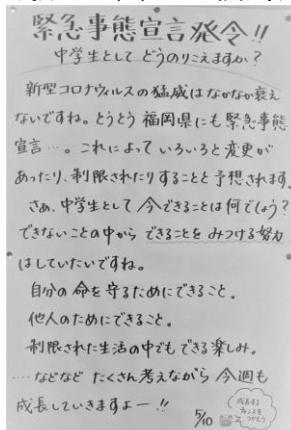 緊急事態宣言発令!!
中学生として どうのりこえますか?
新型コロナウィルスの猛威はなかなか衰え
ないですね。とうとう福岡県にも緊急事態
宣言…。これによっていろいろと変更が
あったり、制限されたりすることと予想されます。
さあ、中学生として今できることは何でしょう?
できないことの中から できることを みつける努力
はしていたいですね。
自分の命を守るためにできること。
他人のためにできること。
制限された生活の中でも できる楽しみ。
……などなど たくさん考えながら 今週も
成長していきますよー!!
5/10
成長する